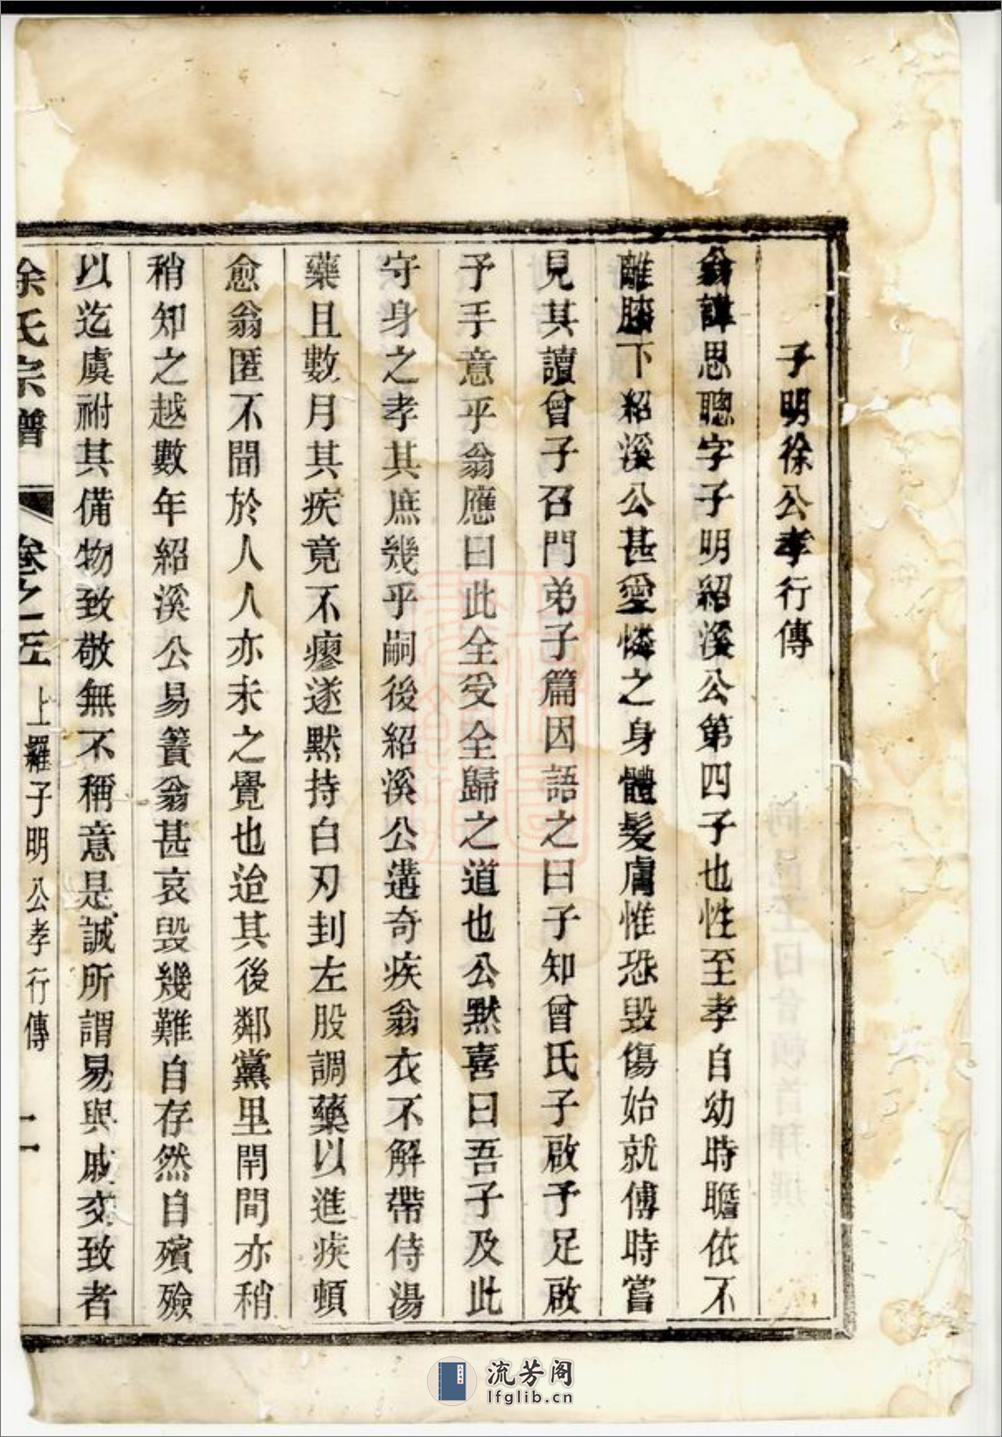 子明徐公孝行傳
翁諱思聰字子明紹溪公第四子也性至孝自幼時瞻依不
離膝下紹溪公甚愛憐之身體髮膚惟恐毀傷始就傅時嘗
見其讀曾子召門弟子篇因語之曰子知曾氏子啟予足啟
予手意乎翁應曰此全受全歸之道也公默喜曰吾子及此
守身之孝其庶幾乎嗣後紹溪公遘奇疾翁衣不解帶侍湯
藥且數月其疾竟不瘳遂默持白刃刲左股調藥以進疾頓
愈翁匿不聞於人人亦未之覺也迨其後鄰黨里閈間亦稍
稍知之越數年紹溪公易簀翁甚哀毀幾難自存然自殯殮
以迄虞祔其備物致敬無不稱意是誠所謂易與戚交致者
徐氏宗譜 卷之五 上羅子明公孝行傳 二
流芳阁
lfglib.cn